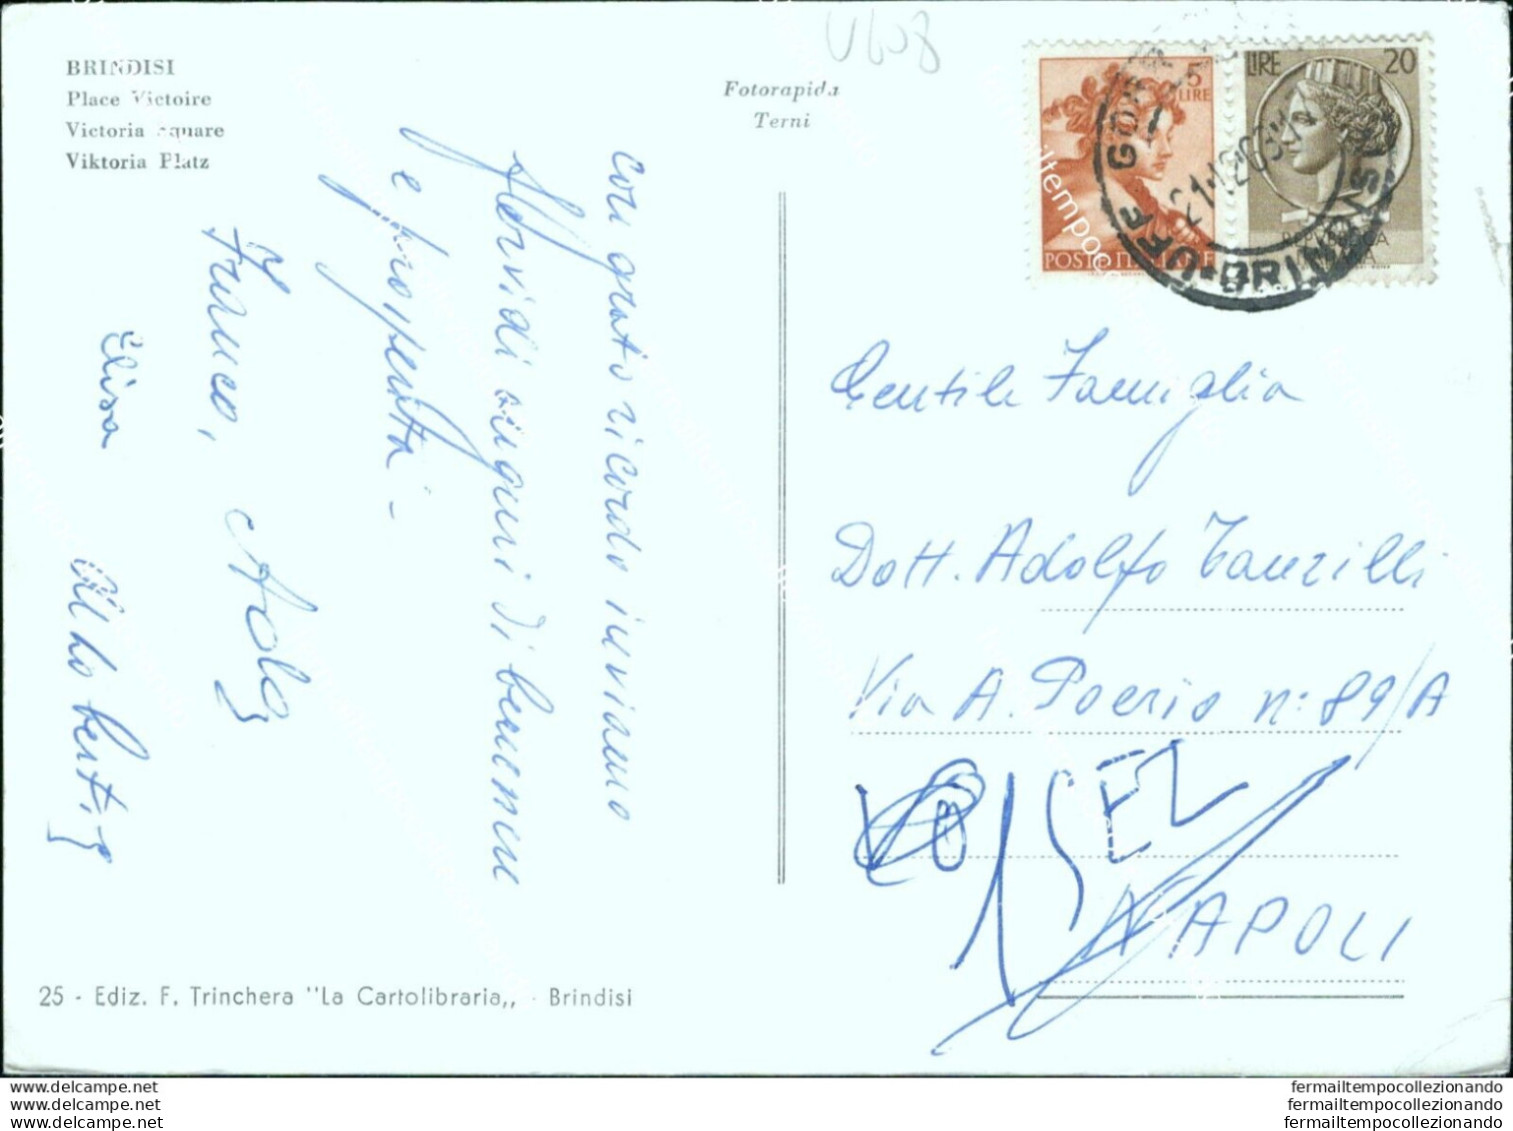 BRINDISI
Place Victoire
Victoria square
Viktoria Platz
Fotorapida
Terni
5
LIRE
POSTE ITALIANE
LIRE 20
REPUBBLICA
ITALIANA
BRINDISI
con grato ricordo inviamo
fervidi auguri di benessere
e prosperità -
Franco,
Elisa
Gentile Famiglia
Dott. Adolfo Tanzilli
Via A. Poerio n: 89/A
NAPOLI
25 - Ediz. F. Trinchera "La Cartolibraria,, - Brindisi
www.delcampe.net
www.delcampe.net
www.delcampe.net
fermailtempocollezionando
fermailtempocollezionando
fermailtempocollezionando